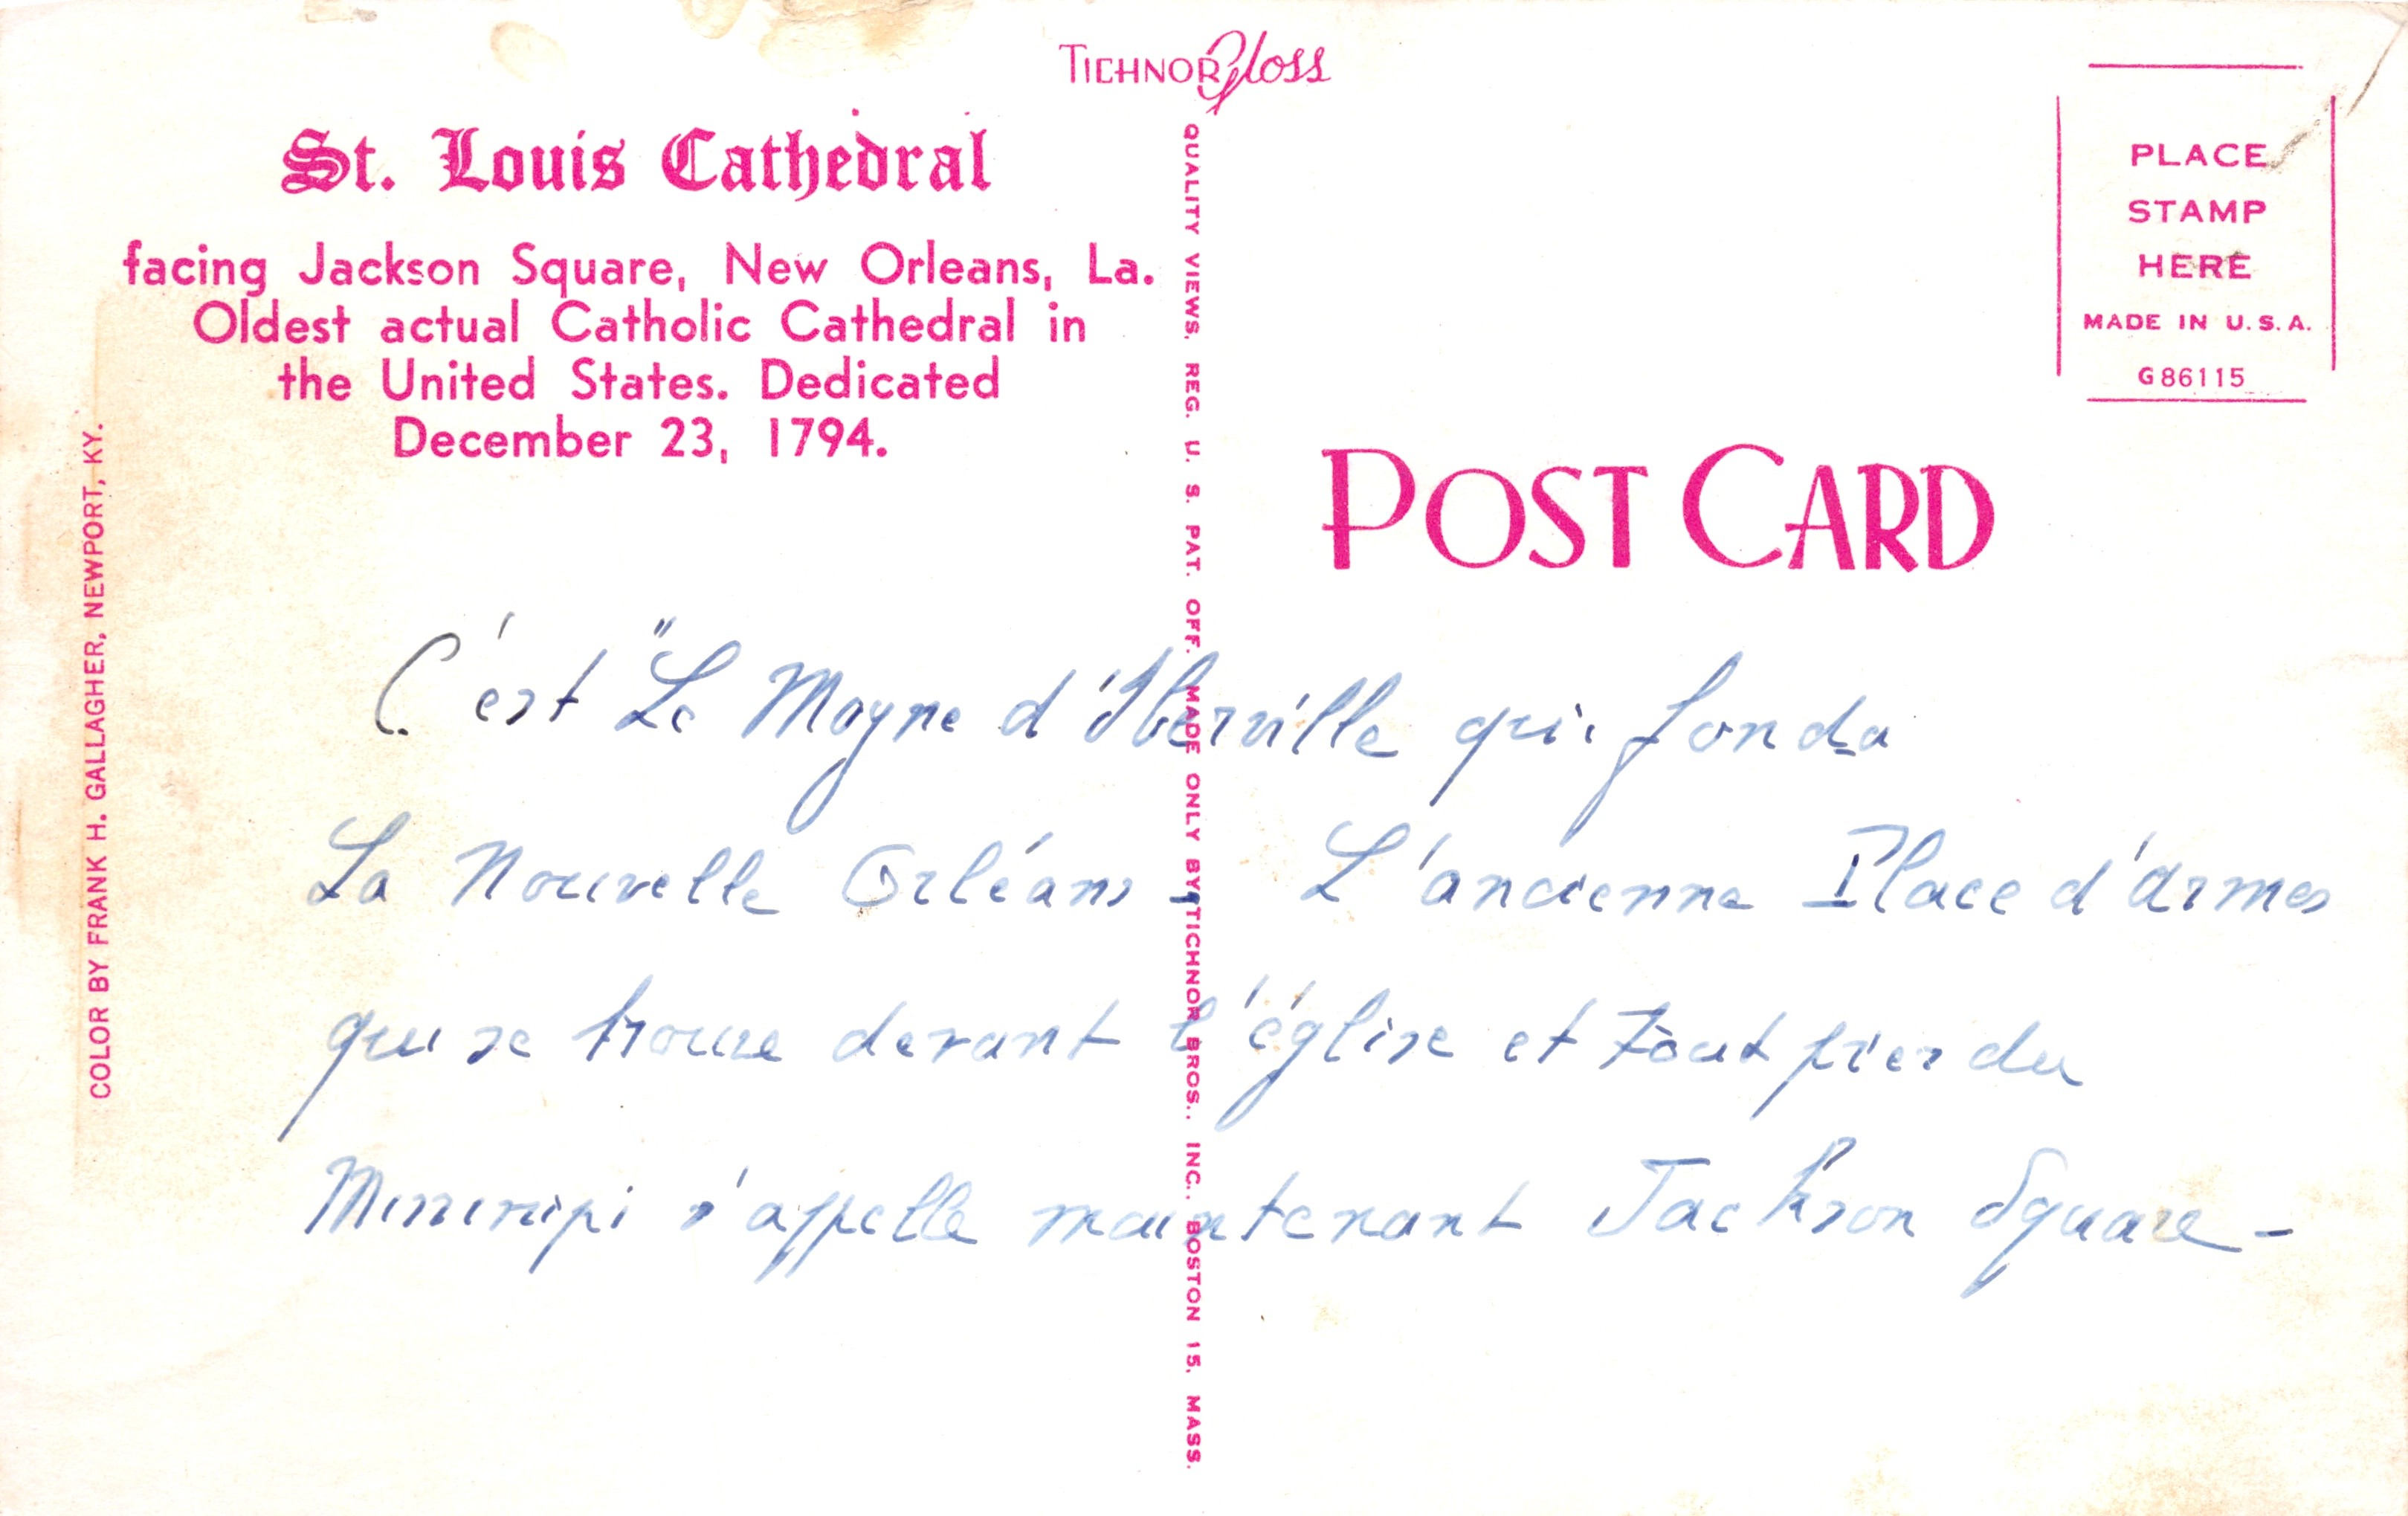 TICHNOR Gloss
St. Louis Cathedral
facing Jackson Square, New Orleans, La.
Oldest actual Catholic Cathedral in
the United States. Dedicated
December 23, 1794.
COLOR BY FRANK H. GALLAGHER, NEWPORT, KY.
QUALITY VIEWS. REG. U. S. PAT. OFF. MADE ONLY BY TICHNOR BROS., INC., BOSTON 15, MASS.
PLACE
STAMP
HERE
MADE IN U.S.A.
G86115
POST CARD
C'est "Le Moyne d'Iberville qui fonda
La Nouvelle Orléans - L'ancienne Place d'armes
qui se trouve devant l'église et tout près du
Mississipi s'appelle maintenant Jackson Square -